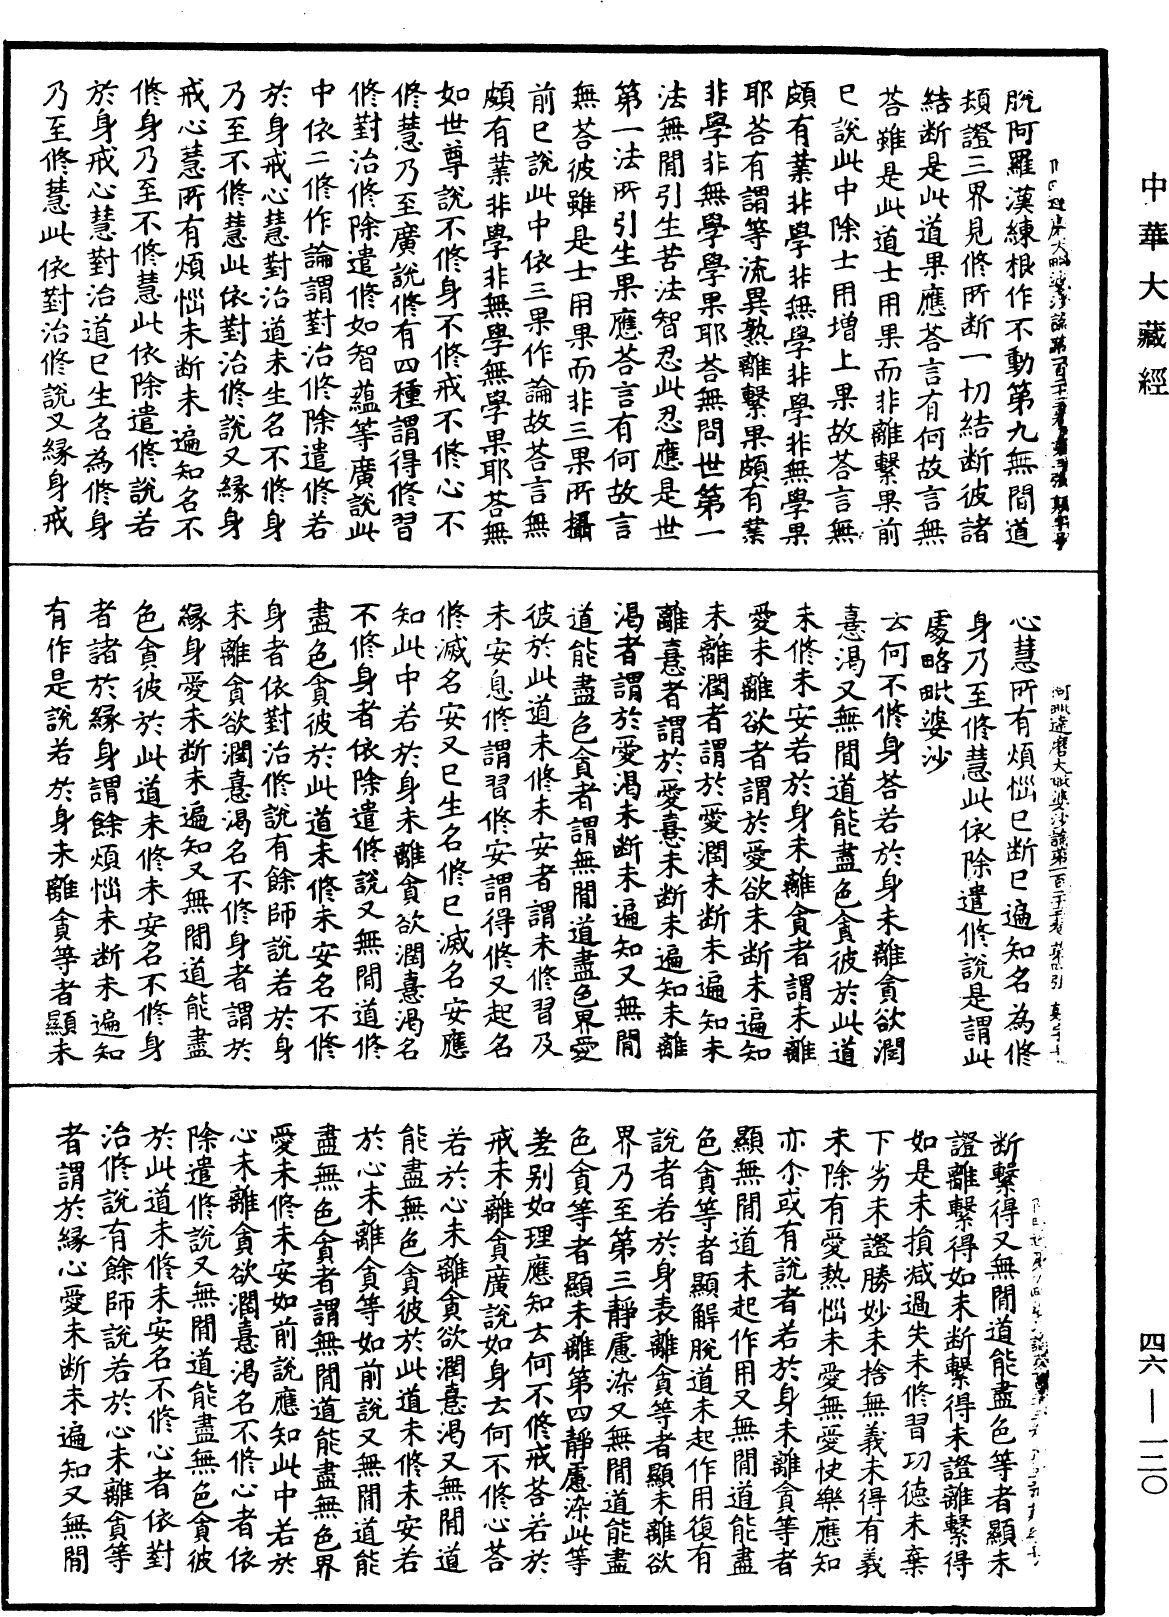 中華大藏經
脫阿羅漢練根作不動第九無間道
頓證三界見修所斷一切結斷彼諸
結斷是此道果應荅言有何故言無
荅雖是此道士用果而非離繫果前
已說此中除士用增上果故荅言無
頗有業非學非無學非學非無學果
耶荅有謂等流異熟離繫果頗有業
非學非無學學果耶荅無問世第一
法無間引生苦法智忍此忍應是世
第一法所引生果應荅言有何故言
無荅彼雖是士用果而非三果所攝
前已說此中依三果作論故荅言無
頗有業非學非無學無學果耶荅無
如世尊說不修身不修戒不修心不
修慧乃至廣說修有四種謂得修習
修對治修除遣修如智蘊等廣說此
中依二修作論謂對治修除遣修若
於身戒心慧對治道未生名不修身
乃至不修慧此依對治修說又緣身
戒心慧所有煩惱未斷未遍知名不
修身乃至不修慧此依除遣修說若
於身戒心慧對治道已生名為修身
乃至修慧此依對治修說又緣身戒
心慧所有煩惱已斷已遍知名為修
身乃至修慧此依除遣修說是謂此
處略毗婆沙
云何不修身荅若於身未離貪欲潤
憙渴又無間道能盡色貪彼於此道
未修未安若於身未離貪者謂未離
愛未離欲者謂於愛欲未斷未遍知
未離潤者謂於愛潤未斷未遍知未
離憙者謂於愛憙未斷未遍知未離
渴者謂於愛渴未斷未遍知又無間
道能盡色貪者謂無間道盡色界愛
彼於此道未修未安者謂未修習及
未安息修謂習修安謂得修又起名
修滅名安又已生名修已滅名安應
知此中若於身未離貪欲潤憙渴名
不修身者依除遣修說又無間道能
盡色貪彼於此道未修未安名不修
身者依對治修說有餘師說若於身
未離貪欲潤憙渴名不修身者謂於
緣身愛未斷未遍知又無間道能盡
色貪彼於此道未修未安名不修身
者諸於緣身謂餘煩惱未斷未遍知
有作是說若於身未離貪等者顯未
斷繫得又無間道能盡色等者顯未
證離繫得如未斷繫得未證離繫得
如是未損減過失未修習功德未棄
下劣未證勝妙未捨無義未得有義
未除有愛熱惱未受無愛快樂應知
亦尒或有說者若於身未離貪等者
顯無間道未起作用又無間道能盡
色貪等者顯解脫道未起作用復有
說者若於身表離貪等者顯未離欲
界乃至第三靜慮染又無間道能盡
色貪等者顯未離第四靜慮染此等
差別如理應知云何不修戒荅若於
戒未離貪廣說如身云何不修心荅
若於心未離貪欲潤憙渴又無間道
能盡無色貪彼於此道未修未安若
於心未離貪等如前說又無間道能
盡無色貪者謂無間道能盡無色界
愛未修未安如前說應知此中若於
心未離貪欲潤憙渴名不修心者依
除遣修說又無間道能盡無色貪彼
於此道未修未安名不修心者依對
治修說有餘師說若於心未離貪等
者謂於緣心愛未斷未遍知又無間
四六—一二〇